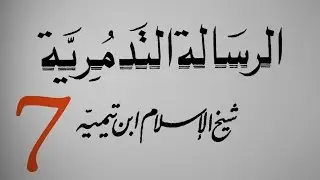 الرسالة التَدمُرِيَّة
شيخ الإسلام ابن تيميّه
7